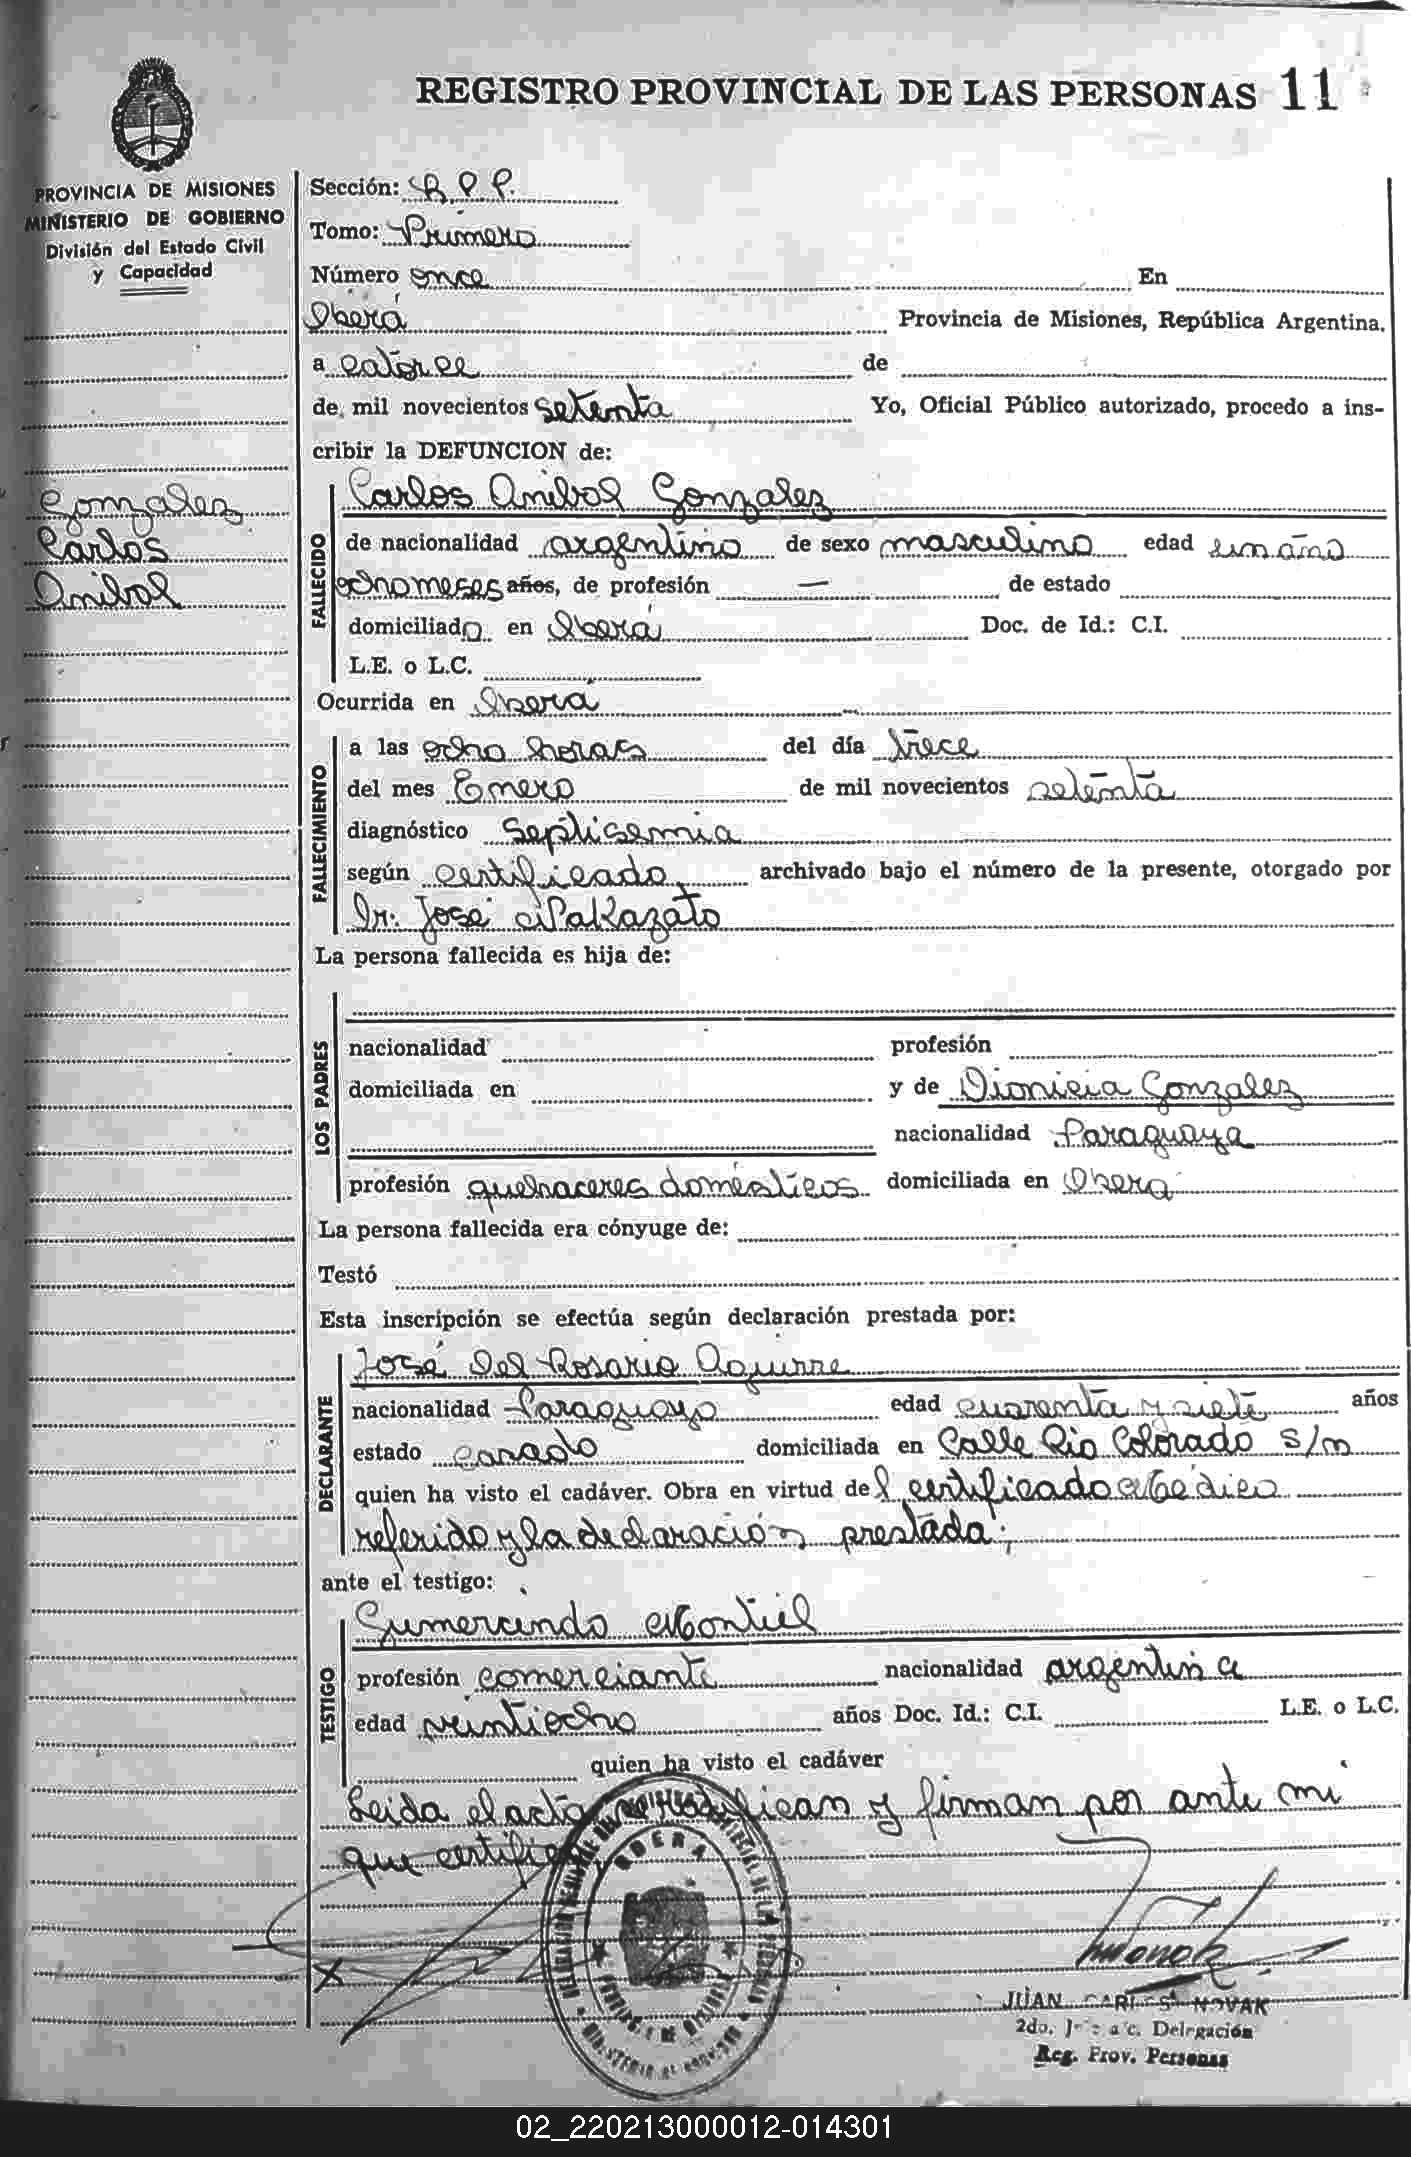 REGISTRO PROVINCIAL DE LAS PERSONAS 11
PROVINCIA DE MISIONES
MINISTERIO DE GOBIERNO
División del Estado Civil
y Capacidad
Gonzalez
Carlos
Anibal
Sección: R.P.P.
Tomo: Primero
Número once En
Oberá Provincia de Misiones, República Argentina,
a catorce de
de mil novecientos setenta Yo, Oficial Público autorizado, procedo a ins-
cribir la DEFUNCION de:
FALLECIDO
Carlos Anibal Gonzalez
de nacionalidad argentino de sexo masculino edad un año
ocho meses años, de profesión — de estado
domiciliado en Oberá Doc. de Id.: C.I.
L.E. o L.C.
Ocurrida en Oberá
FALLECIMIENTO
a las ocho horas del día trece
del mes Enero de mil novecientos setenta
diagnóstico Septisemia
según certificado archivado bajo el número de la presente, otorgado por
Dr. José Nakazato
La persona fallecida es hija de:
LOS PADRES
nacionalidad profesión
domiciliada en y de Dionicia Gonzalez
nacionalidad Paraguaya
profesión quehaceres domésticos domiciliada en Obera
La persona fallecida era cónyuge de:
Testó
Esta inscripción se efectúa según declaración prestada por:
DECLARANTE
José Del Rosario Aguirre
nacionalidad Paraguayo edad cuarenta y siete años
estado casado domiciliada en Calle Rio Colorado s/n
quien ha visto el cadáver. Obra en virtud del certificado Médico
referido y la declaración prestada;
ante el testigo:
TESTIGO
Gumercindo Montiel
profesión comerciante nacionalidad argentina
edad veintiocho años Doc. Id.: C.I. L.E. o L.C.
quien ha visto el cadáver
Leida el acta se ratifican y firman por ante mi
que certifico
OBERA
X
JUAN CARLOS NOVAK
2do. Delegación
Reg. Prov. Personas
02_220213000012-014301